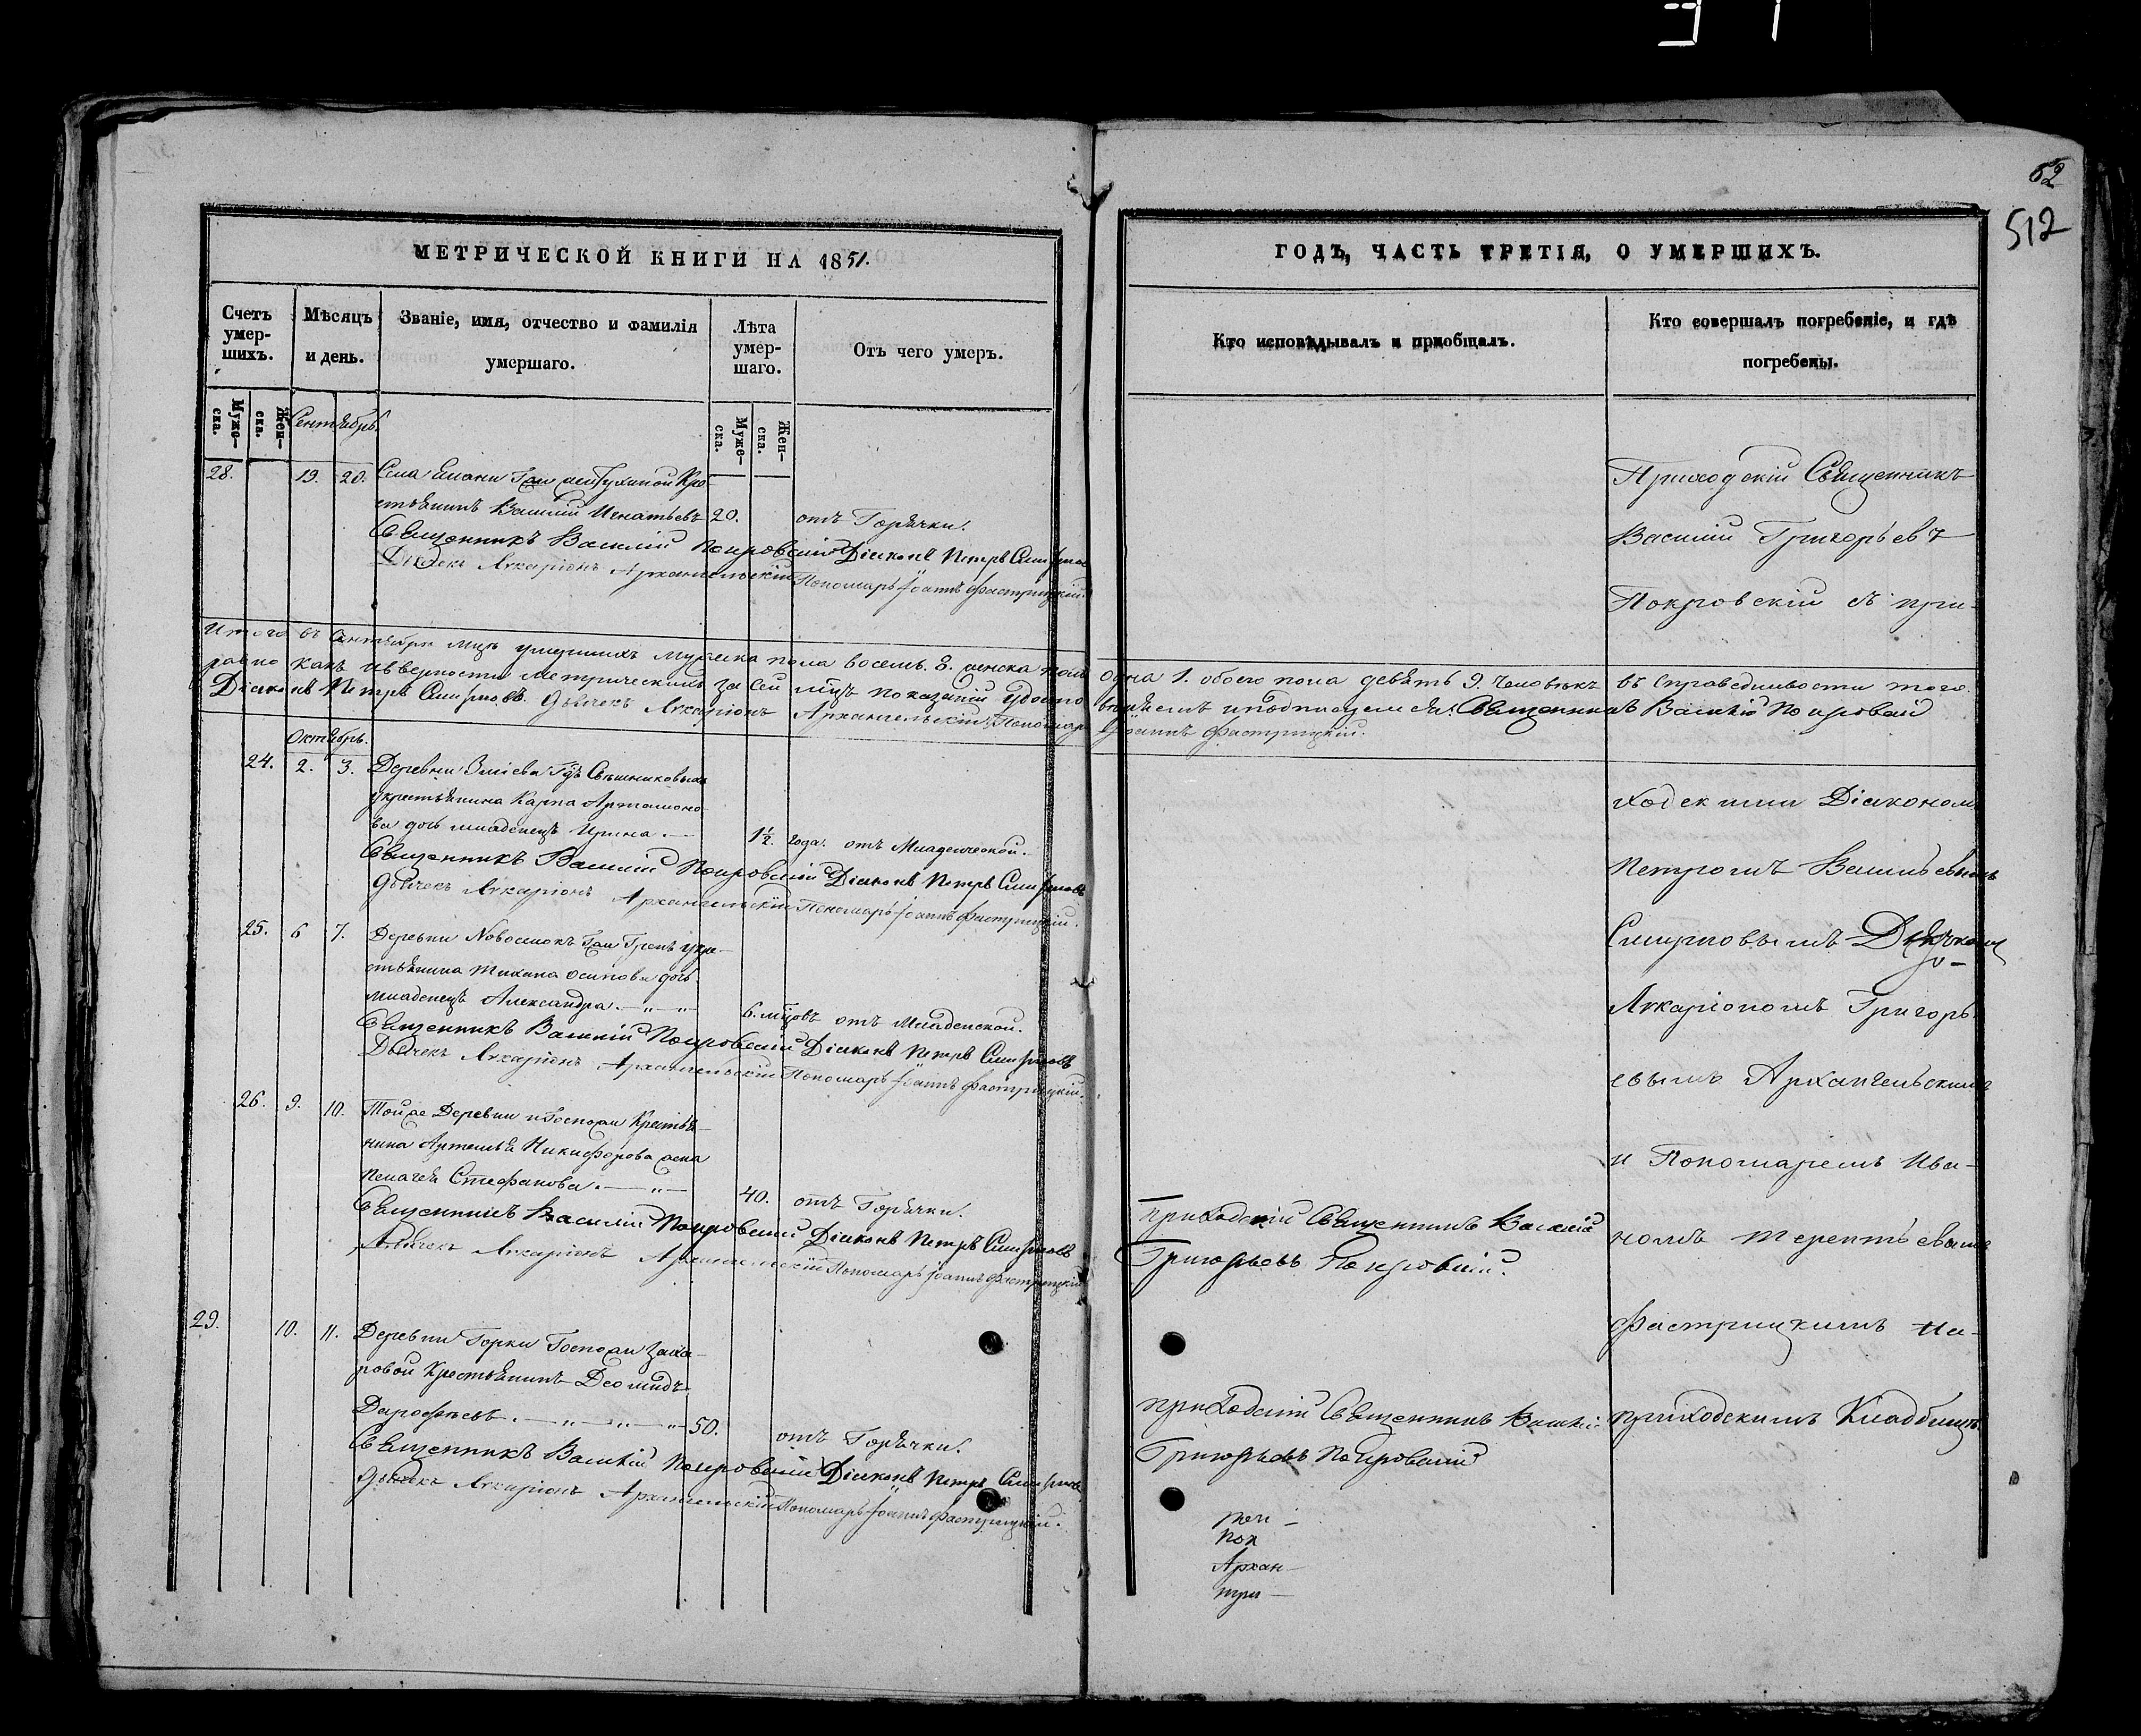 52
512
МЕТРИЧЕСКОЙ КНИГИ НА 1851.
Счетъ умер-шихъ.
Мѣсяцъ и день.
Званіе, имя, отчество и фамилія умершаго.
Лѣта умер-шаго.
Отъ чего умеръ.
Муже-ска.
Жен-ска.
Муже-ска.
Жен-ска.
Сентябрь.
28. 19. 20. Села Кре-
стьянинъ Василій Игнатьевъ 20. отъ Горячки.
Священникъ Василій Покровскій Діаконъ Петръ Смирновъ
Дьячекъ Аркаріонъ Архангельскій Пономарь Іоаннъ Фастрицкій.
Итого въ Сентябрѣ мцѣ умершихъ мужеска пола восемь. 8. женска пола
равно какъ и вверности Метрическихъ за сей мцъ показаній удосто
Діаконъ Петръ Смирновъ. Дьячекъ Аркаріонъ Архангельскій Пономарь
Октябрь.
24. 2. 3. Деревни Свѣшниковыхъ
у крестьянина Карпа Артамоно-
ва дочь младенецъ Ирина. 1½ года. отъ Младенческой.
Священникъ Василій Покровскій Діаконъ Петръ Смирновъ
Дьячекъ Аркаріонъ Архангельскій Пономарь Іоаннъ Фастрицкій.
25. 6 7. Деревни Новоселокъ Гжи у кре-
стьянина Тихана Осипова дочь
младенецъ Александра. 6. мцовъ отъ Младенской.
Священникъ Василій Покровскій Діаконъ Петръ Смирновъ
Дьячекъ Аркаріонъ Архангельскій Пономарь Іоаннъ Фастрицкій.
26. 9. 10. Тойже Деревни и Госпожи Крестья-
нина Артемья Никифорова жена
Пелагея Стефанова. 40. отъ Горячки.
Священникъ Василій Покровскій Діаконъ Петръ Смирновъ
Дьячекъ Аркаріонъ Архангельскій Пономарь Іоаннъ Фастрицкій
29. 10. 11. Деревни Горки Госпожи Заха-
ровой Крестьянинъ Деомидъ
Дарофѣевъ. 50. отъ Горячки.
Священникъ Василій Покровскій Діаконъ Петръ Смирновъ
Дьячекъ Аркаріонъ Архангельскій Пономарь Іоаннъ Фастрицкій.
ГОДЪ, ЧАСТЬ ТРЕТІЯ, О УМЕРШИХЪ.
Кто исповѣдывалъ и пріобщалъ.
Кто совершалъ погребеніе, и гдѣ погребены.
Приходскій Священникъ
Василій Григорьевъ
Покровскій съ при-
одна 1. обоего пола девять 9. Человѣкъ въ Справедливости того.
вѣряемъ и подписуемся. Священникъ Василій Покровскій
Іоаннъ Фастрицкій.
ходскими Діакономъ
Петромъ Васильевымъ
Смирновымъ Дьячкомъ
Аркаріономъ Григорь-
евымъ Архангельскимъ
и Пономаремъ Ива-
номъ Терентьевымъ
Фастрицкимъ На-
приходскимъ Кладбищѣ.
Приходскій Священникъ Василій
Григорьевъ Покровскій.
приходскій Священникъ Василій
Григорьевъ Покровскій
Пок
Архан-
три-